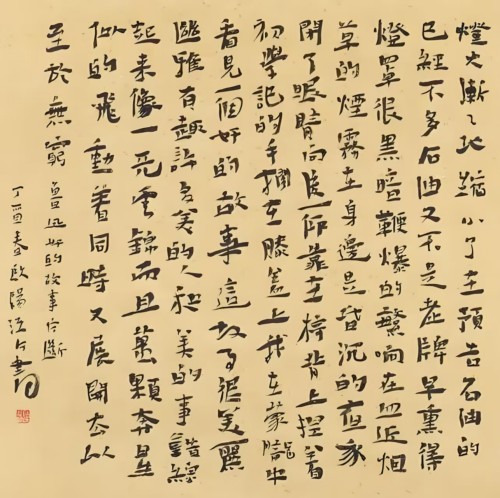 燈火漸々地縮小了在預告石油的
已經不多石油又不是老牌早熏得
燈罩很黑暗鞭爆的繁响在四近烟
草的煙霧在身邊是昏沉的夜我
閉了眼睛向后一仰靠在椅背上捏着
初學記的手擱在膝蓋上我在蒙朧中
看見一個好的故事這故事很美麗
幽雅有趣許多美的人和美的事錯綜
起来像一天雲錦而且萬顆奔星
似的飛動着同時又展開去以
至於無窮 魯迅好的故事片斷
丁酉春欧陽江河書